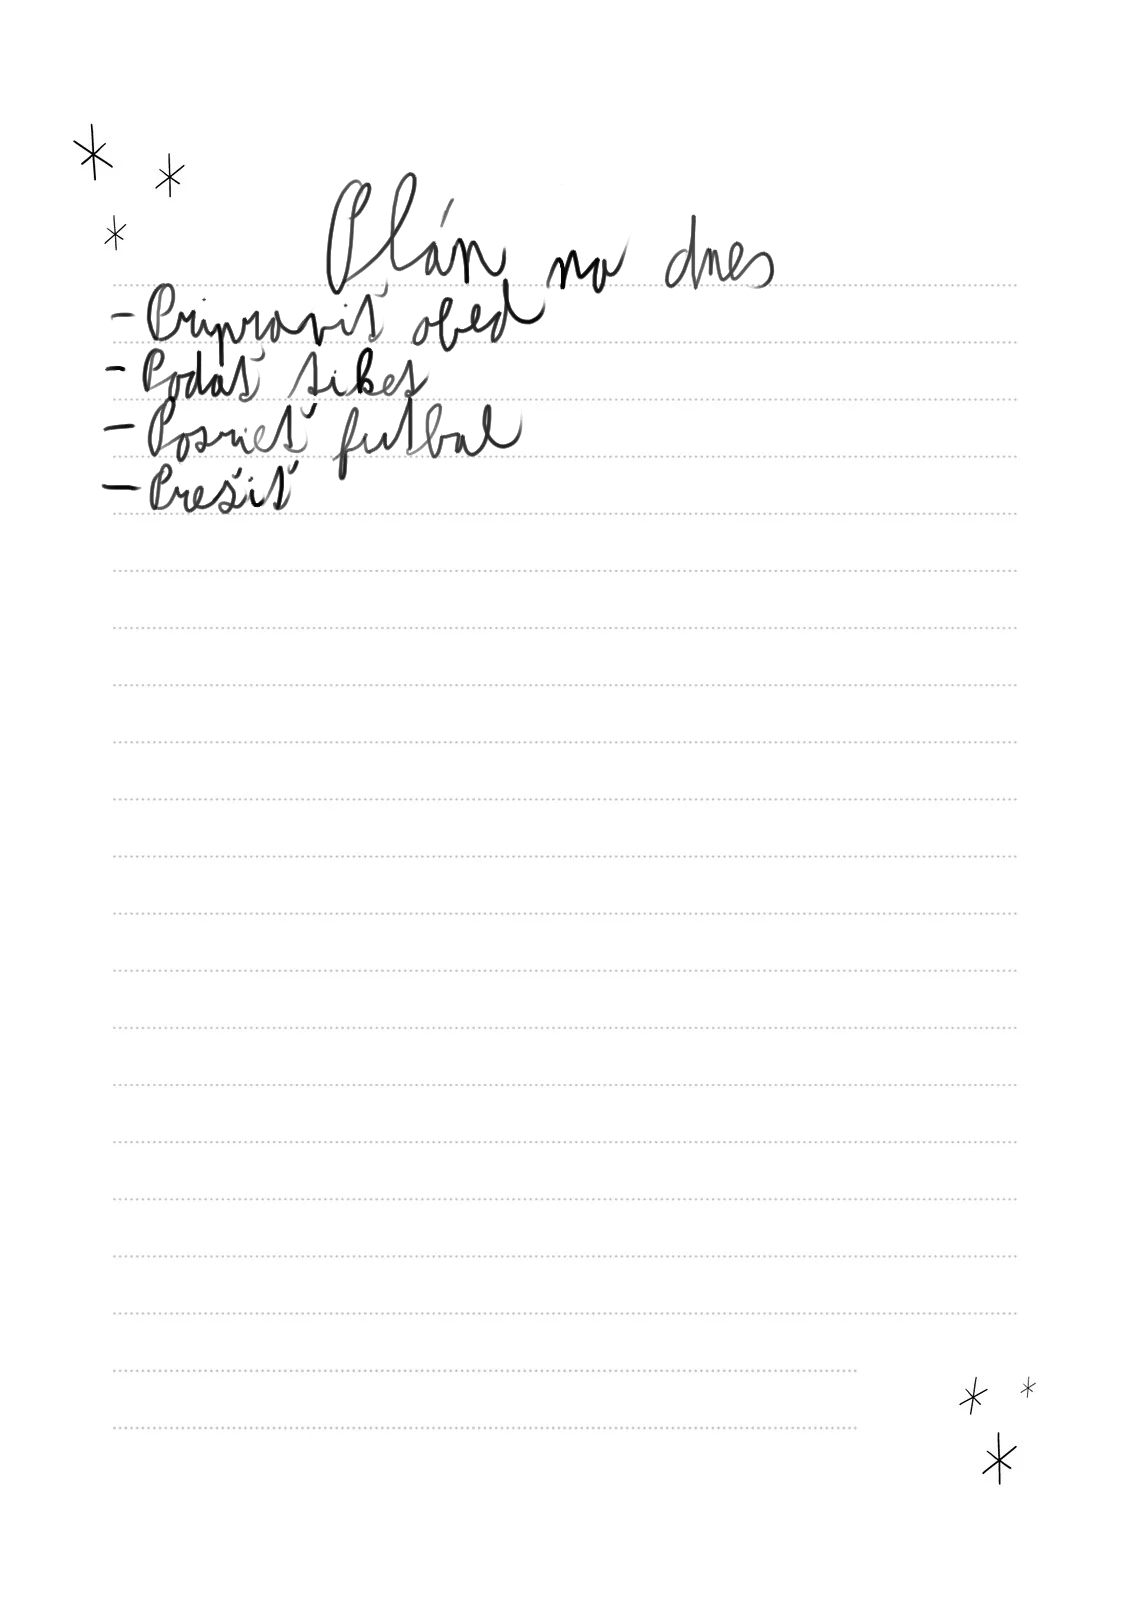 Plán na dnes
- Pripraviť obed
- Podať tiket
- Pozrieť futbal
- Prežiť